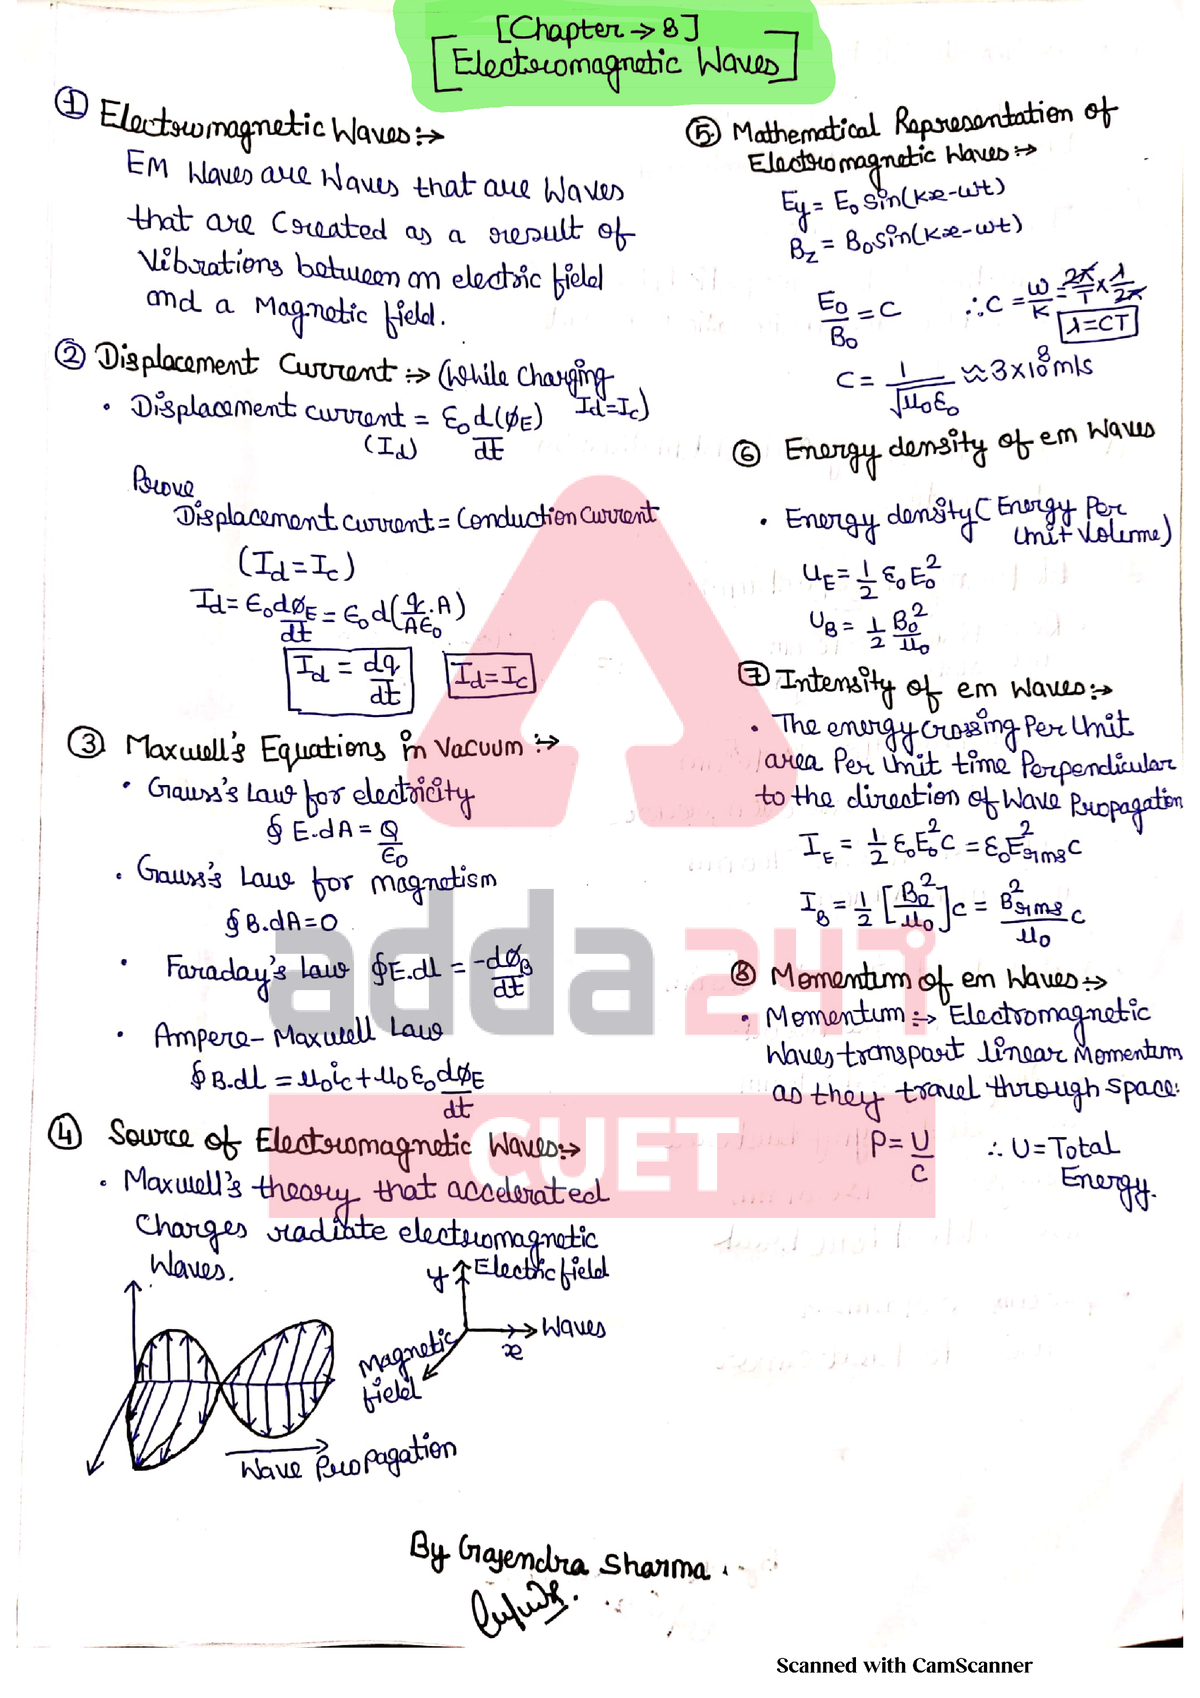 [Chapter → 8]
[Electromagnetic Waves]
① Electromagnetic Waves:→
EM Waves are Waves that are Waves
that are Created as a result of
Vibrations between an electric field
and a Magnetic field.
② Displacement Current :→ (While Charging
Id=Ic)
• Displacement current = ε₀ d(φE)/dt
(Id)
Prove
Displacement current = Conduction Current
(Id = Ic)
Id = ε₀ dφE/dt = ε₀ d(q/Aε₀ . A)
Id = dq/dt
Id = Ic
③ Maxwell's Equations in Vacuum :→
• Gauss's Law for electricity
∮ E.dA = Q/ε₀
• Gauss's Law for magnetism
∮ B.dA = 0
• Faraday's Law ∮E.dl = -dφB/dt
• Ampere-Maxwell Law
∮ B.dl = μ₀ic + μ₀ε₀ dφE/dt
④ Source of Electromagnetic Waves:→
• Maxwell's theory that accelerated
Charges radiate electromagnetic
Waves.
y Electric field
Waves
x
Magnetic
field
Wave Propagation
⑤ Mathematical Representation of
Electromagnetic Waves :→
Ey = E₀ sin(kx-ωt)
Bz = B₀ sin(kx-ωt)
E₀/B₀ = C ∴ C = ω/K = 2π/T × λ/2π
λ = CT
C = 1/√μ₀ε₀ ≈ 3×10⁸ m/s
⑥ Energy density of em Waves
• Energy density (Energy Per
Unit Volume)
UE = 1/2 ε₀E₀²
UB = 1/2 B₀²/μ₀
⑦ Intensity of em Waves:→
• The energy Crossing Per Unit
area Per Unit time Perpendicular
to the direction of Wave Propagation
IE = 1/2 ε₀E₀²C = ε₀E²rms C
IB = 1/2 [B₀²/μ₀]C = B²rms/μ₀ C
⑧ Momentum of em Waves:→
• Momentum :→ Electromagnetic
Waves transport linear Momentum
as they travel through space.
P = U/C ∴ U = Total
Energy.
By Gajendra Sharma
adda247
CUET
Scanned with CamScanner